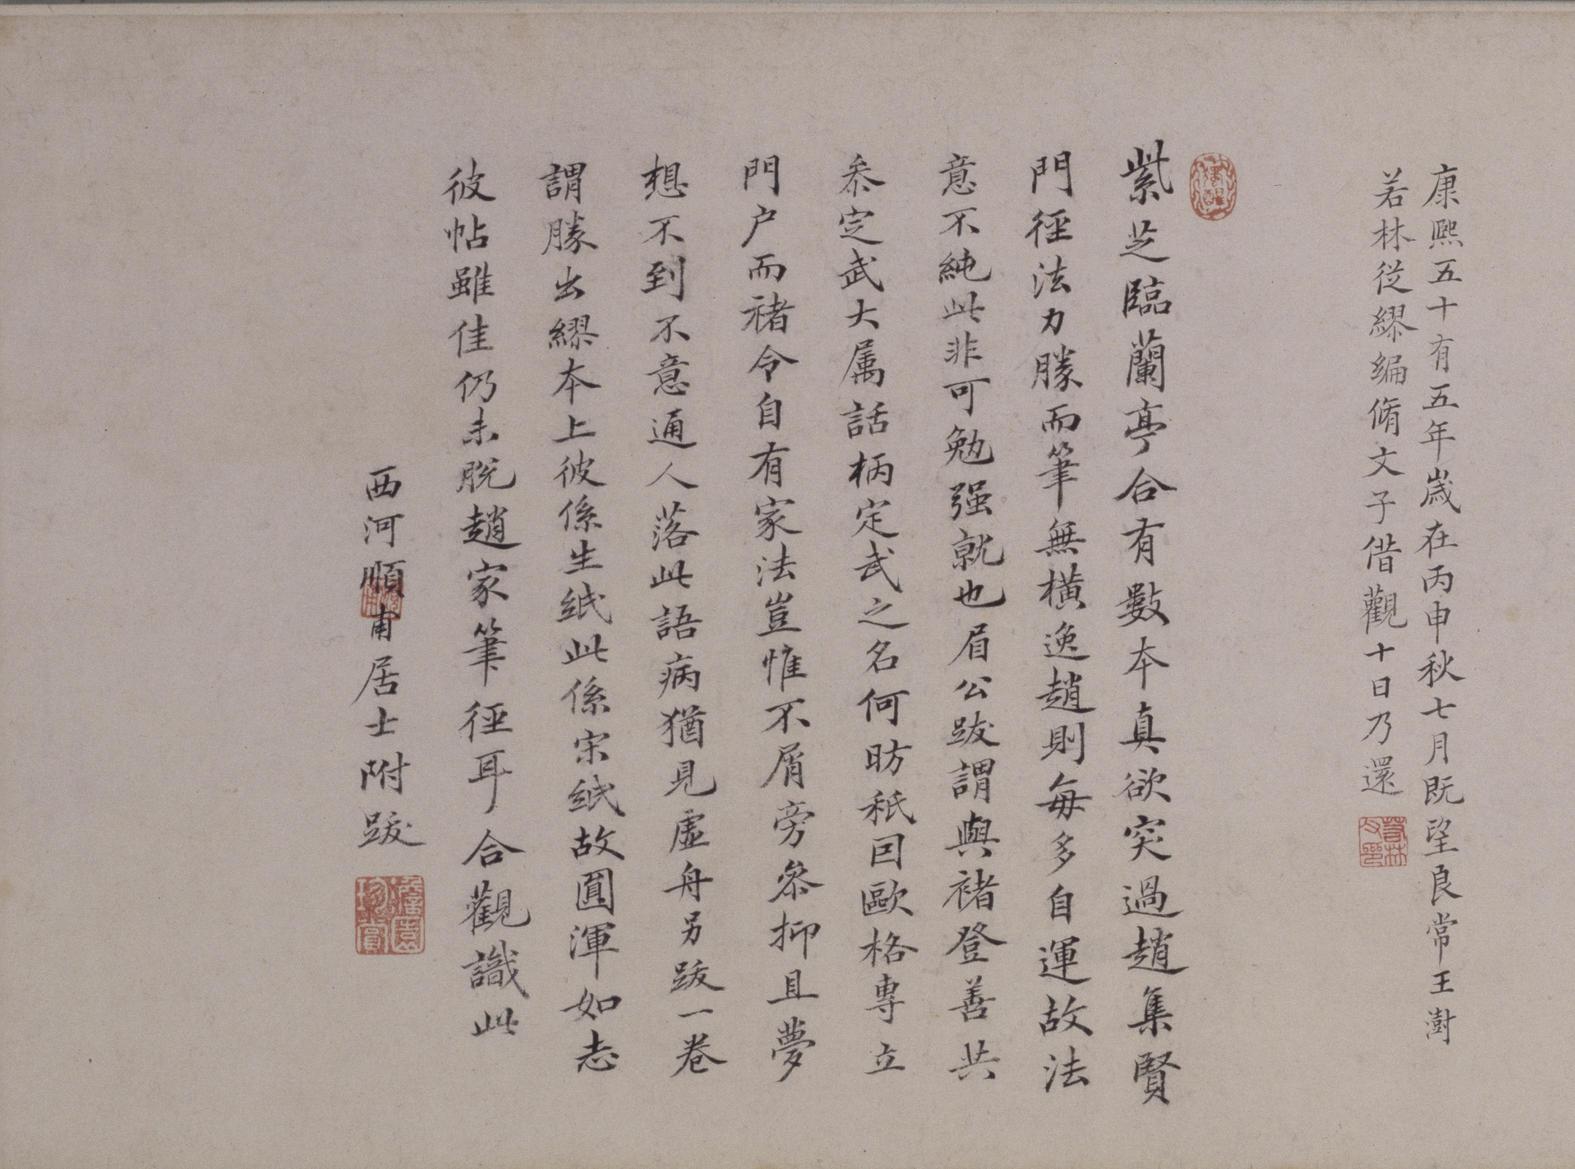 康熙五十有五年嵗在丙申秋七月既望良常王澍
若林從繆編脩文子借觀十日乃還
紫芝臨蘭亭合有數本真欲突過趙集賢
門徑法力勝而筆無橫逸趙則每多自運故法
意不純此非可勉强就也眉公跋謂與褚登善共
叅定武大属話柄定武之名何昉秖因歐格專立
門户而褚令自有家法豈惟不屑旁叅抑且夢
想不到不意通人落此語病猶見虛舟另跋一卷
謂勝出繆本上彼係生紙此係宋紙故圓渾如志
彼帖雖佳仍未脫趙家筆徑耳合觀識此
西河順甫居士附跋